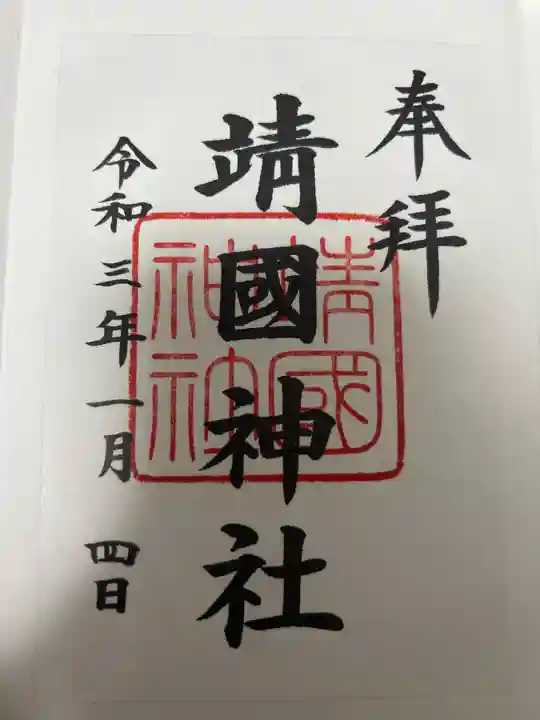 奉拝
靖國神社
靖國
神社
令和三年一月四日